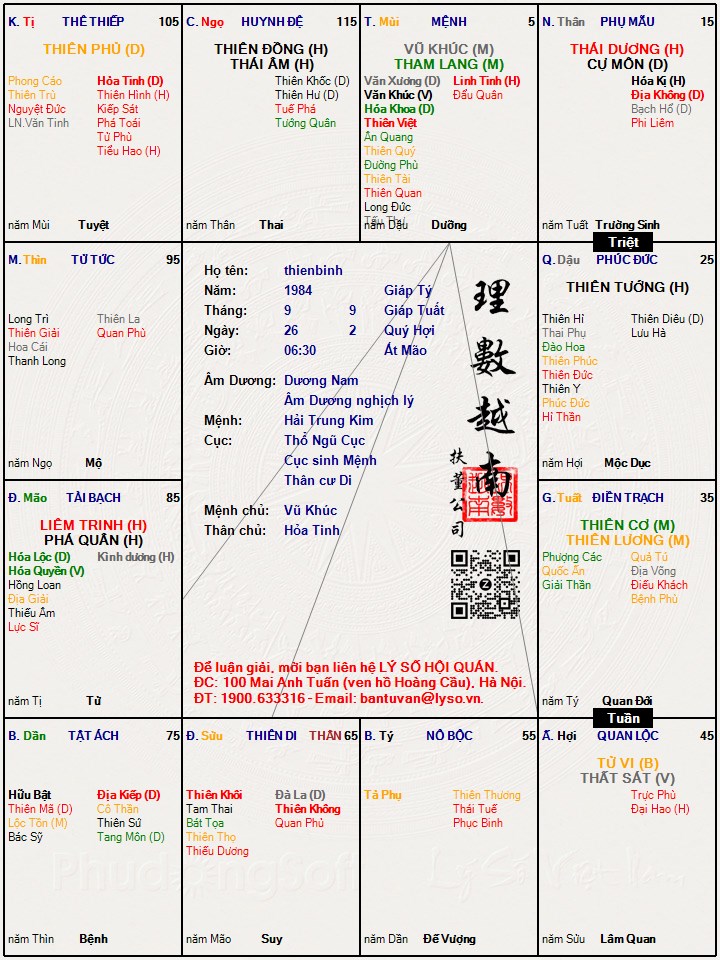 K. Tị THÊ THIẾP 105
THIÊN PHỦ (D)
Phong Cáo
Thiên Trù
Nguyệt Đức
LN.Văn Tinh
Hỏa Tinh (D)
Thiên Hình (H)
Kiếp Sát
Phá Toái
Tử Phù
Tiểu Hao (H)
năm Mùi Tuyệt
C. Ngọ HUYNH ĐỆ 115
THIÊN ĐỒNG (H)
THÁI ÂM (H)
Thiên Khốc (D)
Thiên Hư (D)
Tuế Phá
Tướng Quân
năm Thân Thai
T. Mùi MỆNH 5
VŨ KHÚC (M)
THAM LANG (M)
Văn Xương (D)
Văn Khúc (V)
Hóa Khoa (D)
Thiên Việt
Ân Quang
Thiên Quý
Đường Phù
Thiên Tài
Thiên Quan
Long Đức
Tấu Thư
Linh Tinh (H)
Đẩu Quân
năm Dậu Dưỡng
N. Thân PHỤ MẪU 15
THÁI DƯƠNG (H)
CỰ MÔN (D)
Hóa Kị (H)
Địa Không (D)
Bạch Hổ (D)
Phi Liêm
năm Tuất Trường Sinh
Triệt
M. Thìn TỬ TỨC 95
Long Trì
Thiên Giải
Hoa Cái
Thanh Long
Thiên La
Quan Phù
năm Ngọ Mộ
Họ tên: thienbinh
Năm: 1984 Giáp Tý
Tháng: 9 9 Giáp Tuất
Ngày: 26 2 Quý Hợi
Giờ: 06:30 Ất Mão
Âm Dương: Dương Nam
Âm Dương nghịch lý
Mệnh: Hải Trung Kim
Cục: Thổ Ngũ Cục
Cục sinh Mệnh
Thân cư Di
Mệnh chủ: Vũ Khúc
Thân chủ: Hỏa Tinh
理數越南
扶董公司
Để luận giải, mời bạn liên hệ LÝ SỐ HỘI QUÁN.
ĐC: 100 Mai Anh Tuấn (ven hồ Hoàng Cầu), Hà Nội.
ĐT: 1900.633316 - Email: bantuvan@lyso.vn.
Q. Dậu PHÚC ĐỨC 25
THIÊN TƯỚNG (H)
Thiên Hỉ
Thai Phụ
Đào Hoa
Thiên Phúc
Thiên Đức
Thiên Y
Phúc Đức
Hỉ Thần
Thiên Diêu (D)
Lưu Hà
năm Hợi Mộc Dục
Đ. Mão TÀI BẠCH 85
LIÊM TRINH (H)
PHÁ QUÂN (H)
Hóa Lộc (D)
Hóa Quyền (V)
Hồng Loan
Địa Giải
Thiếu Âm
Lực Sĩ
Kình dương (H)
năm Tị Tử
G. Tuất ĐIỀN TRẠCH 35
THIÊN CƠ (M)
THIÊN LƯƠNG (M)
Phượng Các
Quốc Ấn
Giải Thần
Quả Tú
Địa Võng
Điếu Khách
Bệnh Phù
năm Tý Quan Đới
Tuần
B. Dần TẬT ÁCH 75
Hữu Bật
Thiên Mã (D)
Lộc Tồn (M)
Bác Sỹ
Địa Kiếp (D)
Cô Thần
Thiên Sứ
Tang Môn (D)
năm Thìn Bệnh
Đ. Sửu THIÊN DI THÂN 65
Thiên Khôi
Tam Thai
Bát Tọa
Thiên Thọ
Thiếu Dương
Đà La (D)
Thiên Không
Quan Phủ
năm Mão Suy
B. Tý NÔ BỘC 55
Tả Phụ
Thiên Thương
Thái Tuế
Phục Binh
năm Dần Đế Vượng
Ấ. Hợi QUAN LỘC 45
TỬ VI (B)
THẤT SÁT (V)
Trực Phù
Đại Hao (H)
năm Sửu Lâm Quan